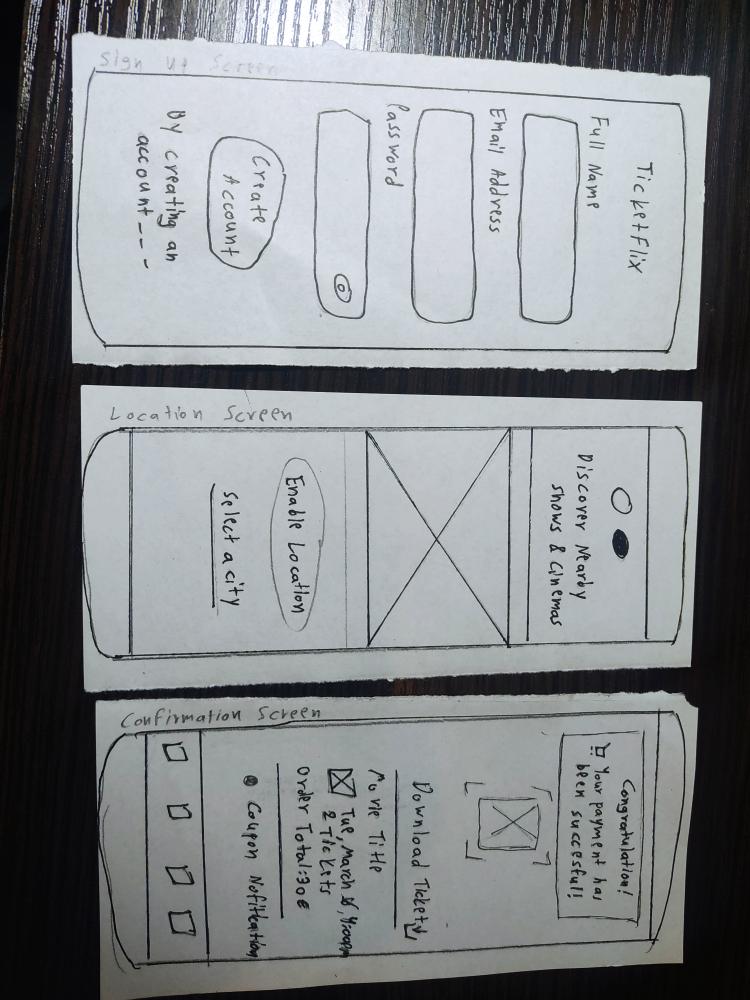 TicketFlix
Full Name
Email Address
Password
Create
Account
By creating an
account---
Sign Up Screen
Discover Nearby
shows & Cinemas
Enable Location
Select a city
Location Screen
Congratulation!
Your payment has
been succesful!
Download Ticket
Movie Title
Tue, March
2 Tickets
Order Total:30€
Coupon Nofitication
Confirmation Screen